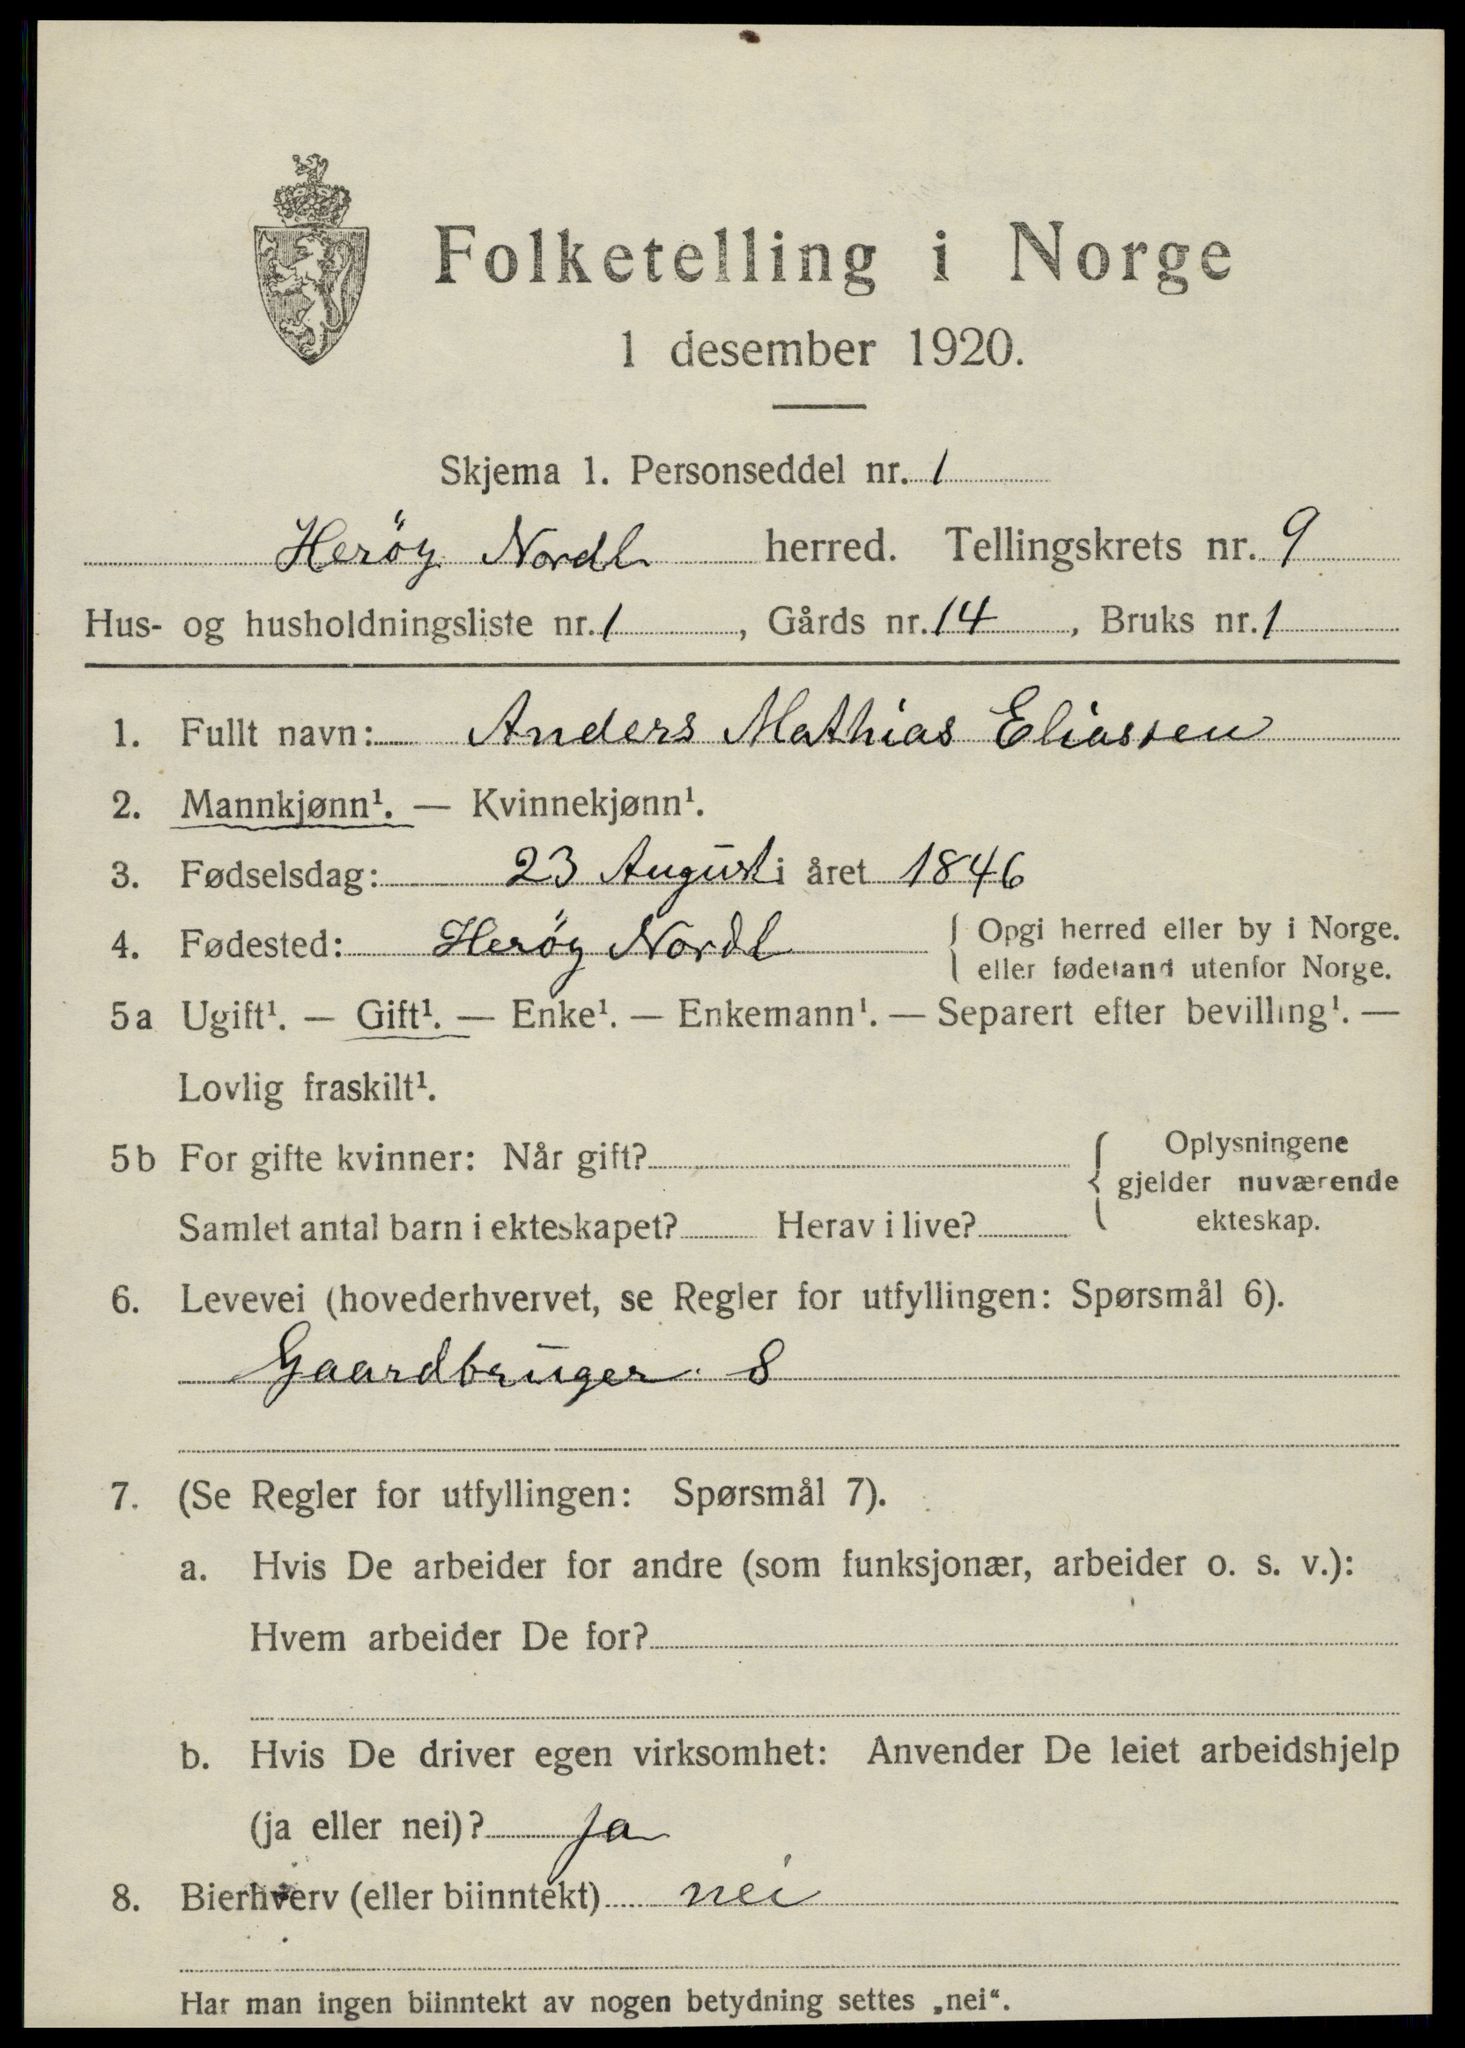 Folketelling i Norge
1 desember 1920.
Skjema 1. Personseddel nr. 1
Herøy Nordl herred. Tellingskrets nr. 9
Hus- og husholdningsliste nr. 1, Gårds nr. 14, Bruks nr. 1
1. Fullt navn: Anders Mathias Eliassen
2. Mannkjønn¹. — Kvinnekjønn¹.
3. Fødselsdag: 23 August i året 1846
4. Fødested: Herøy Nordl { Opgi herred eller by i Norge.
eller fødeland utenfor Norge.
5a Ugift¹. — Gift¹. — Enke¹. — Enkemann¹. — Separert efter bevilling¹. —
Lovlig fraskilt¹.
5b For gifte kvinner: Når gift?
Samlet antal barn i ekteskapet? Herav i live?
Oplysningene
gjelder nuværende
ekteskap.
6. Levevei (hovederhvervet, se Regler for utfyllingen: Spørsmål 6).
Gaardbruger. S
7. (Se Regler for utfyllingen: Spørsmål 7).
a. Hvis De arbeider for andre (som funksjonær, arbeider o. s. v.):
Hvem arbeider De for?
b. Hvis De driver egen virksomhet: Anvender De leiet arbeidshjelp
(ja eller nei)? Ja
8. Bierhverv (eller biinntekt) nei
Har man ingen biinntekt av nogen betydning settes „nei“.